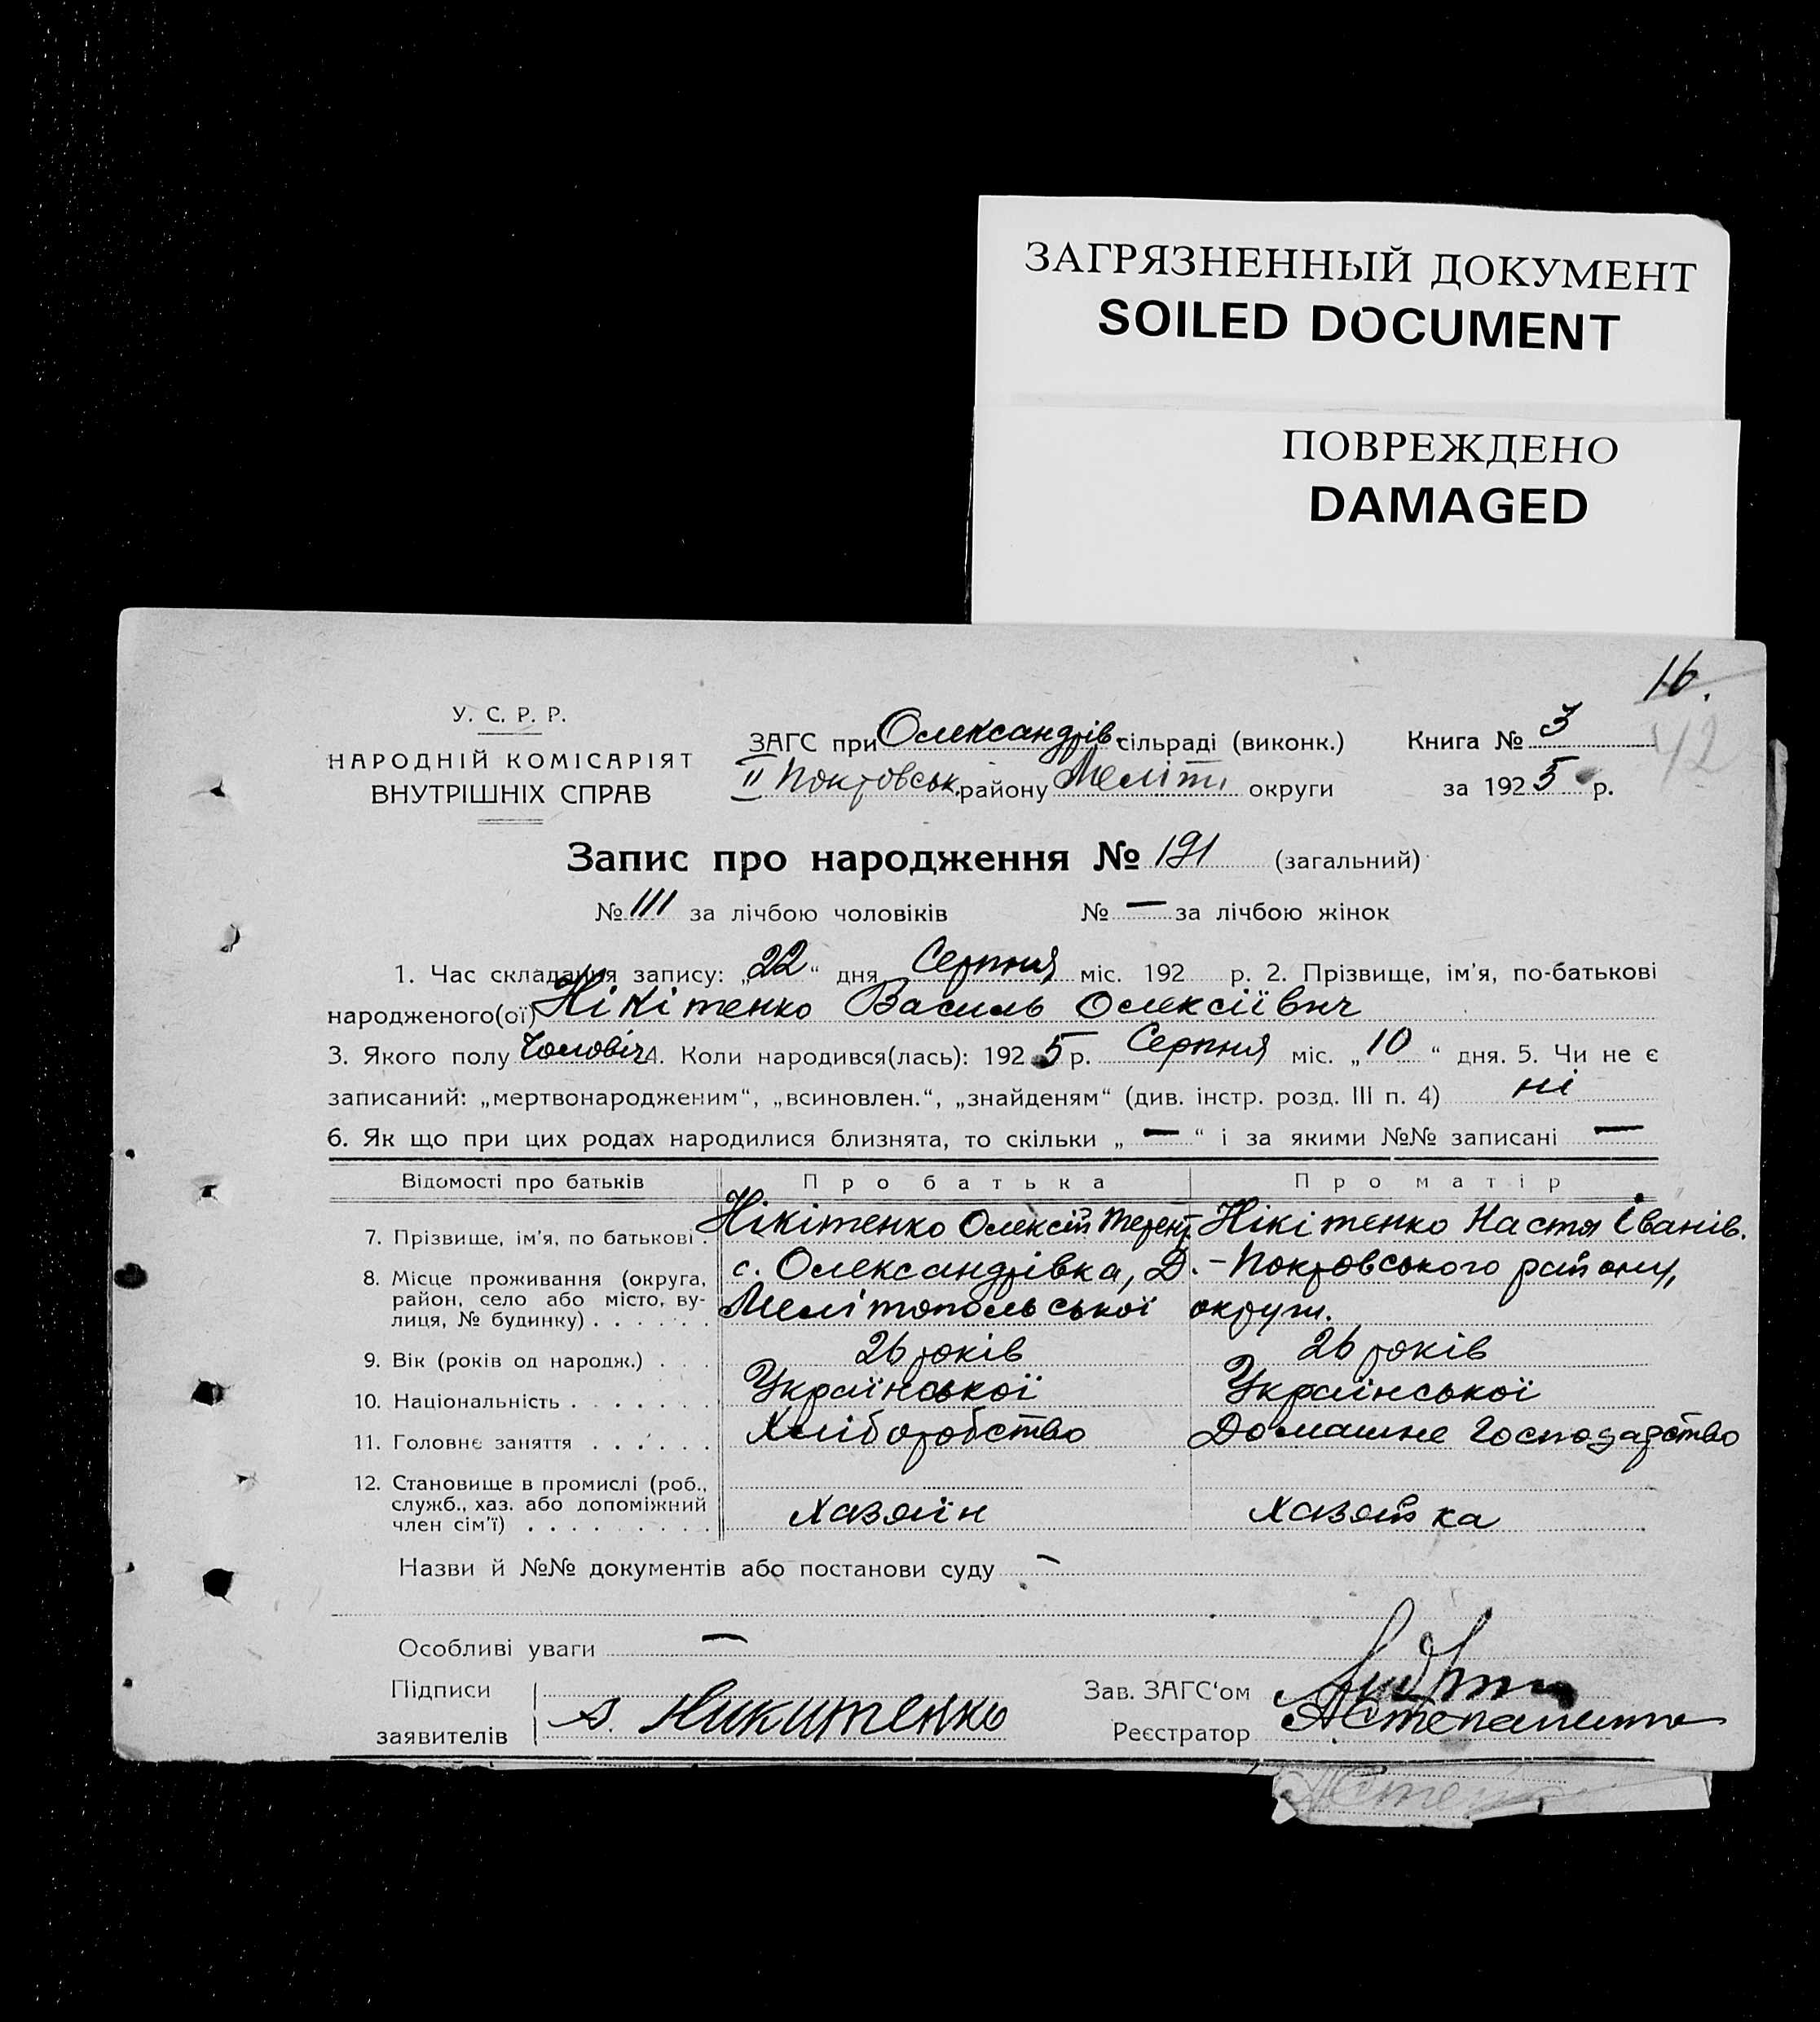 ЗАГРЯЗНЕННЫЙ ДОКУМЕНТ
SOILED DOCUMENT
ПОВРЕЖДЕНО
DAMAGED
16.
42
У. С. Р. Р.
НАРОДНІЙ КОМІСАРІЯТ
ВНУТРІШНІХ СПРАВ
ЗАГС при Олександрів. сільраді (виконк.) Книга № 3
II Покровськ. району Меліт. округи за 1925 р.
Запис про народження № 191 (загальний)
№ 111 за лічбою чоловіків № — за лічбою жінок
1. Час складання запису: „22“ дня Серпня міс. 192 р. 2. Прізвище, ім’я, по-батькові
народженого(ої) Нікітенко Василь Олексіївич
3. Якого полу Чоловіч. 4. Коли народився(лась): 1925 р. Серпня міс. „10“ дня. 5. Чи не є
записаний: „мертвонародженим“, „всиновлен.“, „знайденям“ (див. інстр. розд. III п. 4) ні
6. Як що при цих родах народилися близнята, то скільки „—“ і за якими №№ записані —
Відомості про батьків Про батька Про матір
7. Прізвище, ім’я, по батькові. Нікітенко Олексій Терент. Нікітенко Настя Іванів.
8. Місце проживання (округа, район, село або місто, ву-лиця, № будинку) . . . . . . с. Олександрівка, Д. - Покровського району,
Мелітопольської округи.
9. Вік (років од народж.) . . . 26 років 26 років
10. Національність . . . . . . . Української Української
11. Головне заняття . . . . . . Хліборобство Домашне Господарство
12. Становище в промислі (роб.,
служб., хаз. або допоміжний
член сім’ї) . . . . . . . . . Хазяїн Хазяйка
Назви й №№ документів або постанови суду —
Особливі уваги —
Підписи
заявителів А. Никитенко
Зав. ЗАГС‘ом
Реєстратор